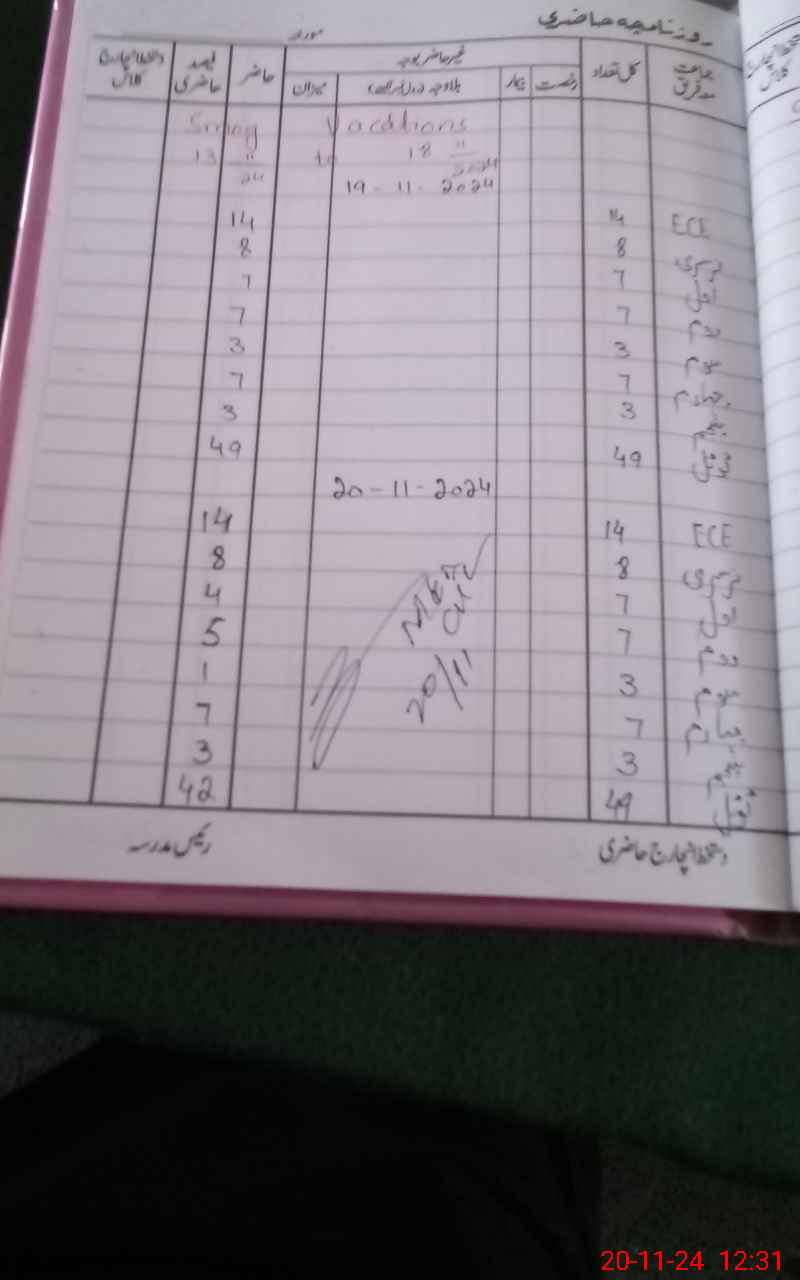 روزنامچہ حاضری
مورخہ
جماعت مع فریق کل تعداد غیر حاضر بوجہ حاضر فیصد حاضری دستخط انچارج کلاس
رخصت بیمار بلاوجہ میزان
Smog Vacations
13 11/24 to 18 11/2024
19-11-2024
ECE 14 14
نرسری 8 8
اول 7 7
دوم 7 7
سوم 3 3
چہارم 7 7
پنجم 3 3
ٹوٹل 49 49
20-11-2024
ECE 14 14
نرسری 8 8
اول 7 4
دوم 7 5
سوم 3 1
چہارم 7 7
پنجم 3 3
ٹوٹل 49 42
20/11
دستخط انچارج حاضری رئیس مدرسہ
دستخط انچارج کلاس
20-11-24 12:31